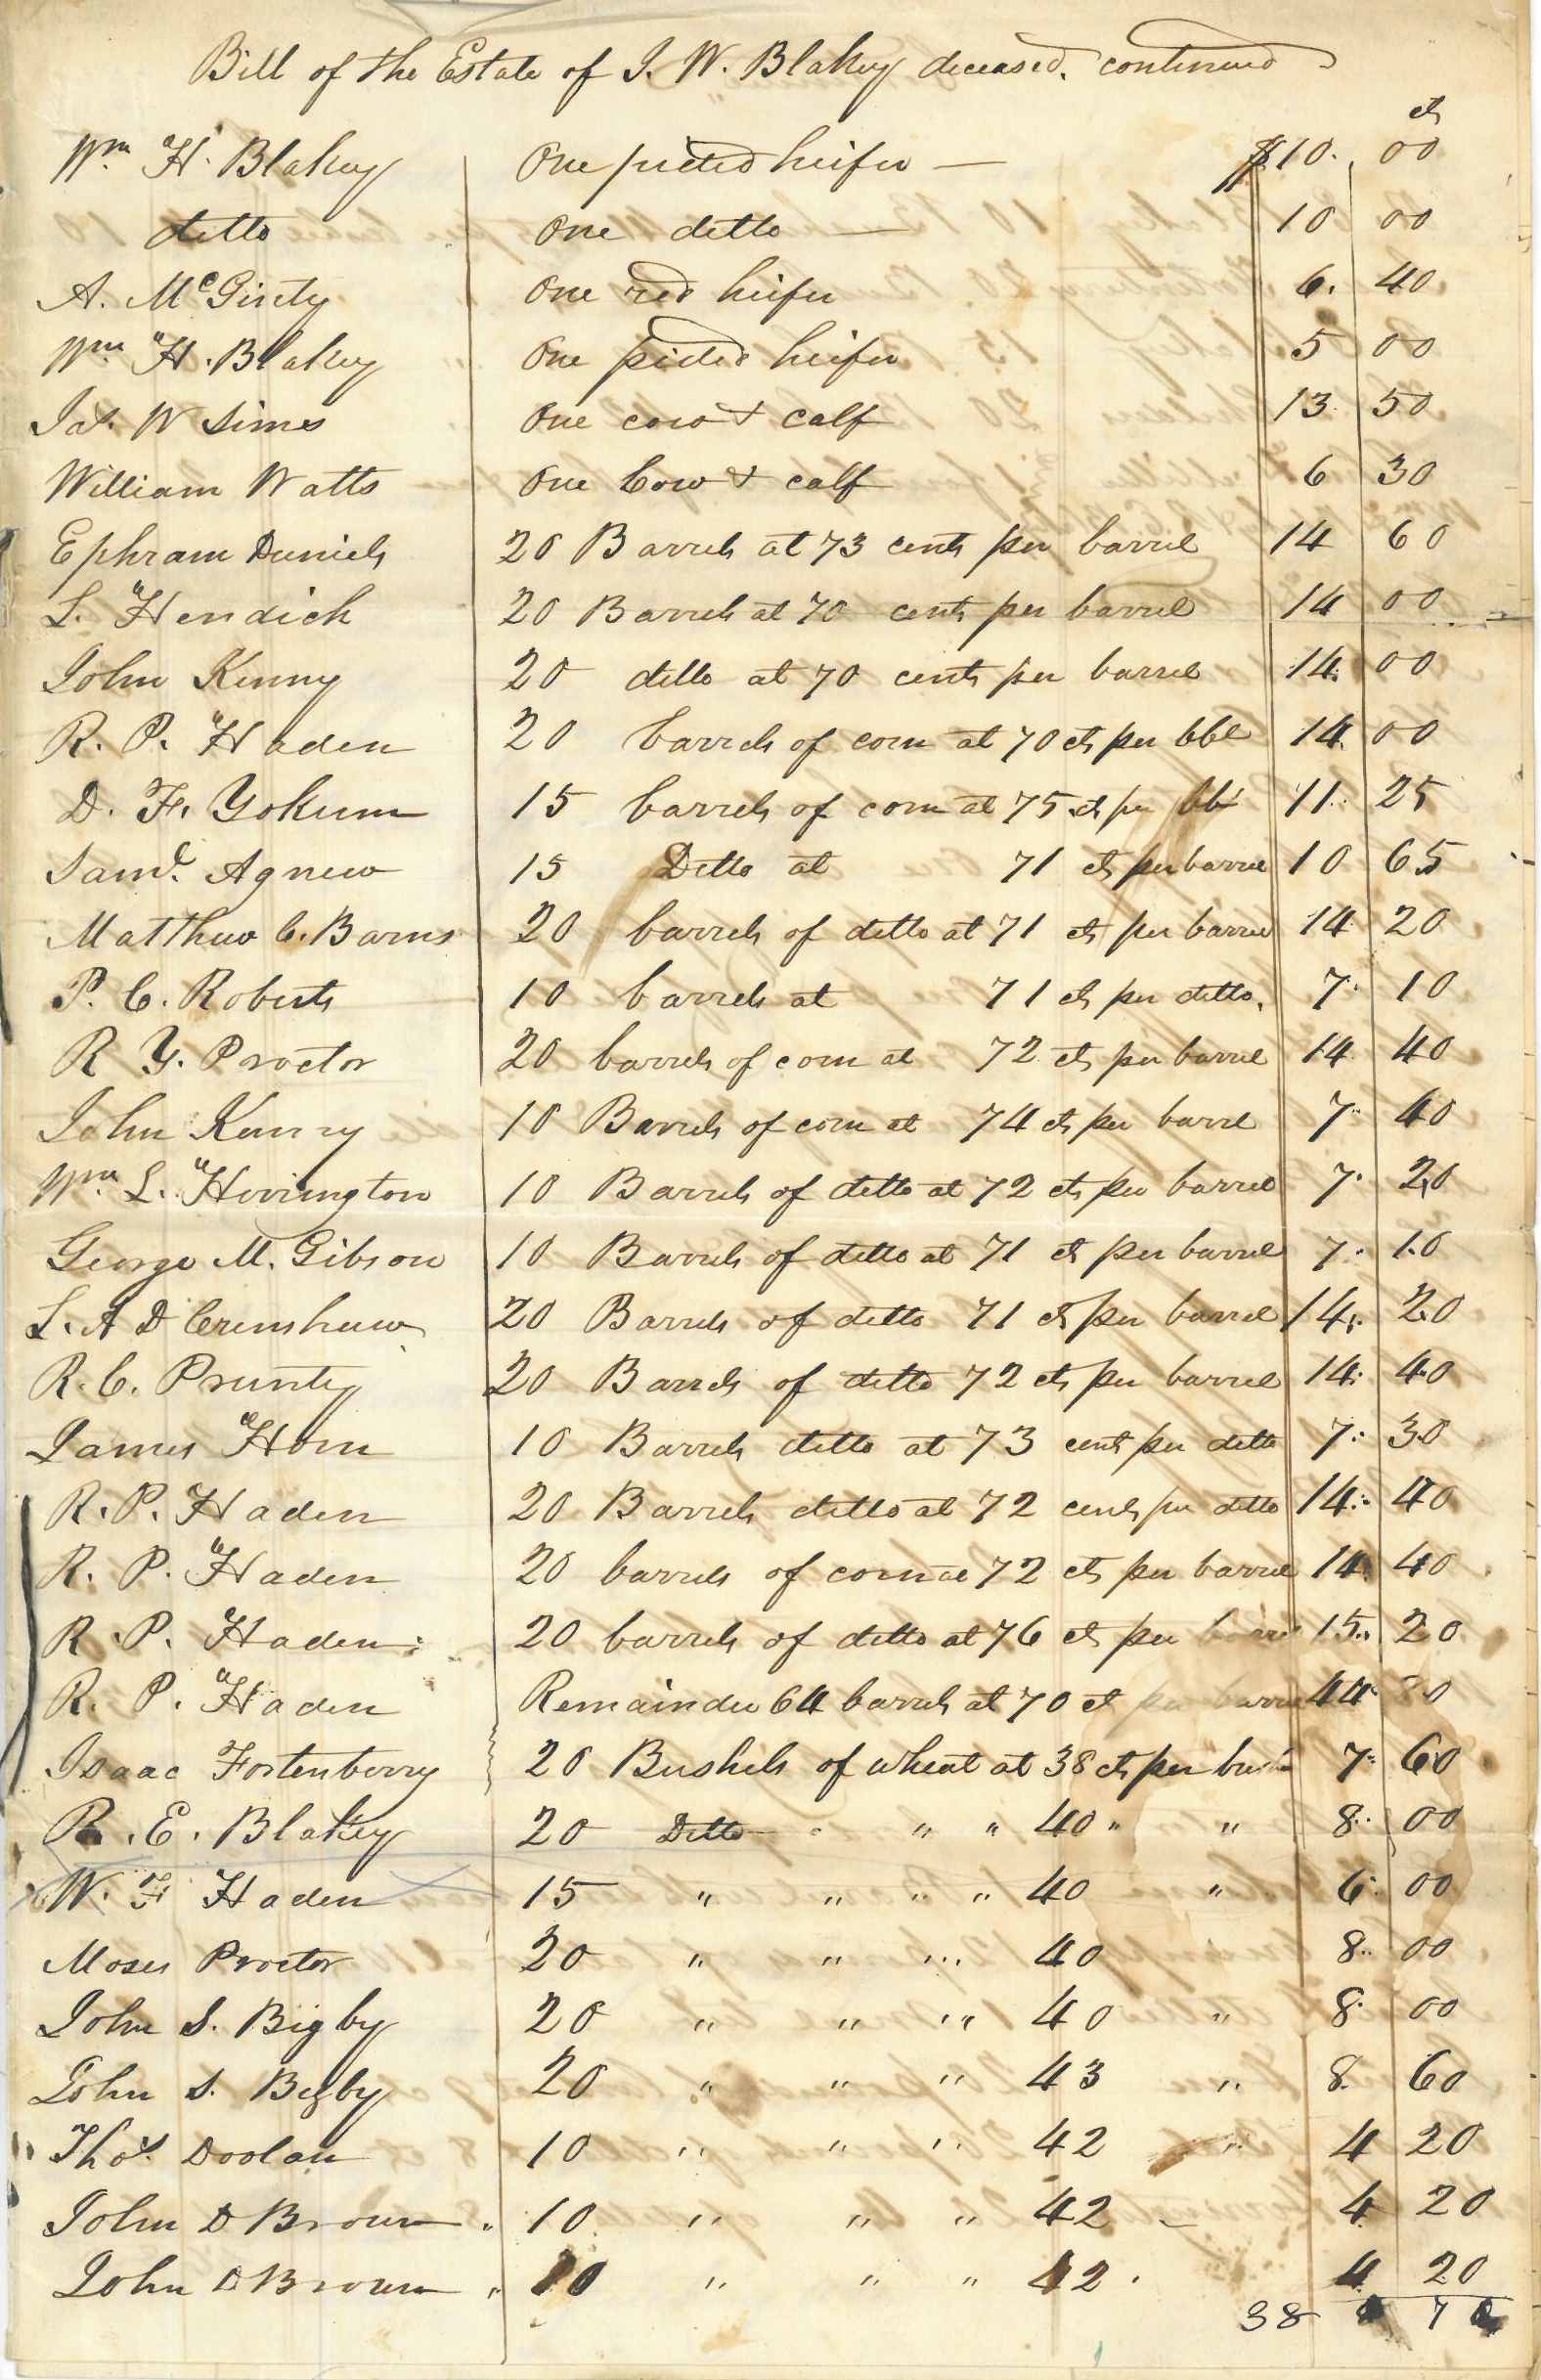 Bill of the Estate of J. W. Blakey deceased. continued
cts
Wm H. Blakey One pieded heifer — $10. 00
ditto One ditto — 10 00
A. McGinty One red heifer 6. 40
Wm H. Blakey One pided heifer 5 00
Jas. W Sims One cow & calf 13. 50
William Watts One Cow & calf 6 30
Ephram Daniels 20 Barrels at 73 cents per barrel 14 60
L. Hendick 20 Barrels at 70 cents per barrel 14 00
John Kenny 20 ditto at 70 cents per barrel 14. 00
R. P. Haden 20 barrels of corn at 70 cts per bbl 14. 00
D. F. Yokum 15 barrels of corn at 75 cts per bbl 11. 25
Saml. Agnew 15 Ditto at 71 cts per barrel 10 65
Matthew C. Barns 20 barrels of ditto at 71 cts per barrel 14 20
P. C. Roberts 10 barrels at 71 cts per ditto. 7. 10
R Y. Proctor 20 barrels of corn at 72 cts per barrel 14 40
John Kenny 10 Barrels of corn at 74 cts per barrel 7. 40
Wm. L. Herrington 10 Barrels of ditto at 72 cts per barrel 7. 20
George M. Gibson 10 Barrels of ditto at 71 ct per barrel 7. 10
L. A D Crenshaw 20 Barrels of ditto 71 ct per barrel 14. 20
R. C. Prunty 20 Barrels of ditto 72 cts per barrel 14. 40
James Horn 10 Barrels ditto at 73 cents per ditto 7. 30
R. P. Haden 20 Barrels ditto at 72 cents per ditto 14. 40
R. P. Haden 20 barrels of corn at 72 cts per barrel 14 40
R. P. Haden 20 barrels of ditto at 76 cts per barrel 15. 20
R. P. Haden Remainder 64 barrels at 70 ct per barrel 44 80
Isaac Fortenberry 20 Bushels of wheat at 38 cts per bushel 7 60
R. E. Blakey 20 Ditto " " 40 " " 8. 00
W. F Haden 15 " " " " 40 " 6. 00
Moses Proctor 20 " " " 40 8. 00
John S. Bigby 20 " " " 40 " 8. 00
John S. Bigby 20 " " " 43 " 8. 60
Thos. Doolan 10 " " " 42 " 4 20
John D Brown " 10 " " " 42 4 20
John D Brown " 10 " " " 42 4 20
38 7